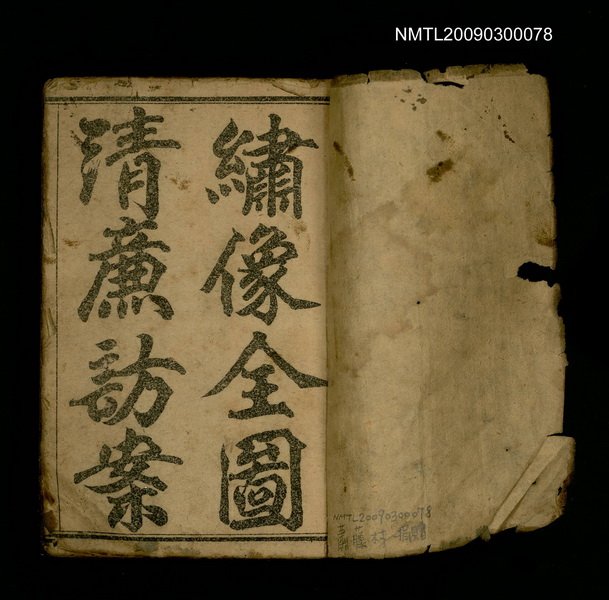 NMTL20090300078
繡像全圖
清廉訪案
NMTL20090300078